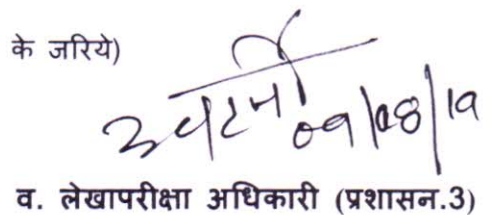 के जरिये)
09/08/19
व. लेखापरीक्षा अधिकारी (प्रशासन.3)